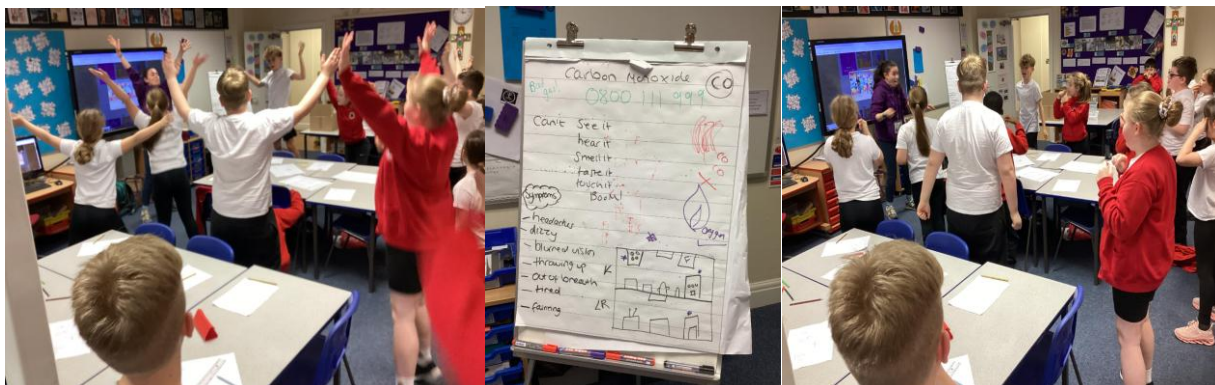 Carbon Monoxide
CO
0800 111 999
Can't See it
hear it
Smell it
taste it
touch it
Symptoms
- headaches
- dizzy
- blurred vision
- throwing up
- out of breath
- tired
- fainting
oxygen
K
LR